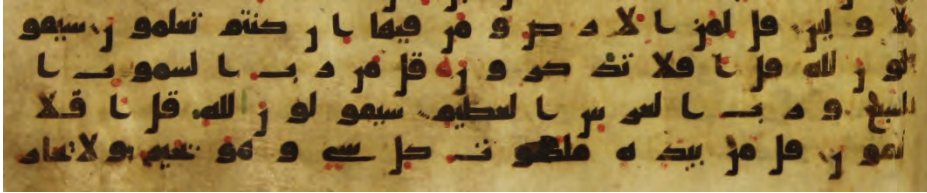 الاولين قل لمن الارض ومن فيها ان كنتم تعلمون سيقو
لون لله قل افلا تذكرون قل من رب السموت ا
لسبع ورب العرش العظيم سيقولون لله قل افلا
تتقون قل من بيده ملكوت كل شى وهو يجير ولا يجار